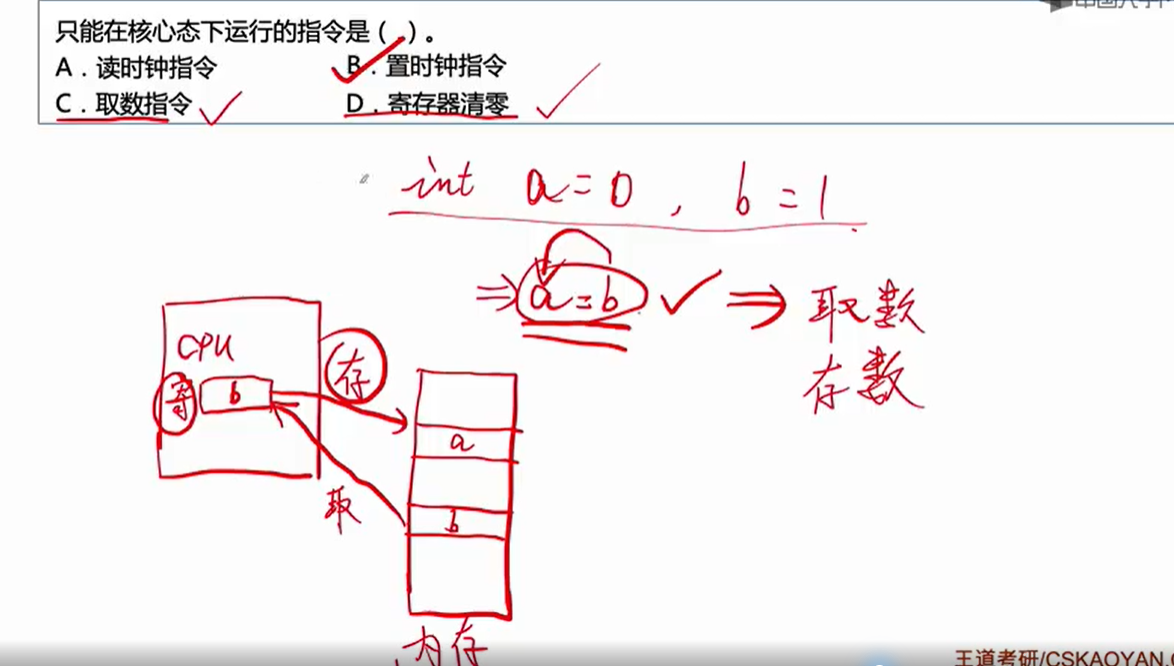 只能在核心态下运行的指令是 ( ) 。
A．读时钟指令 B．置时钟指令
C．取数指令 D．寄存器清零
int a=0 , b=1
⇒ a=b ⇒ 取数
存数
CPU
存
寄 b
a
取
b
内存
王道考研/CSKAOYAN.